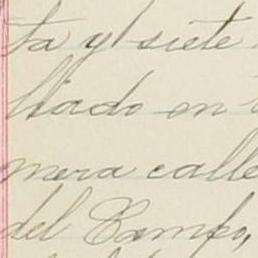 ta y siete
lado en
mera calle
del Campo,